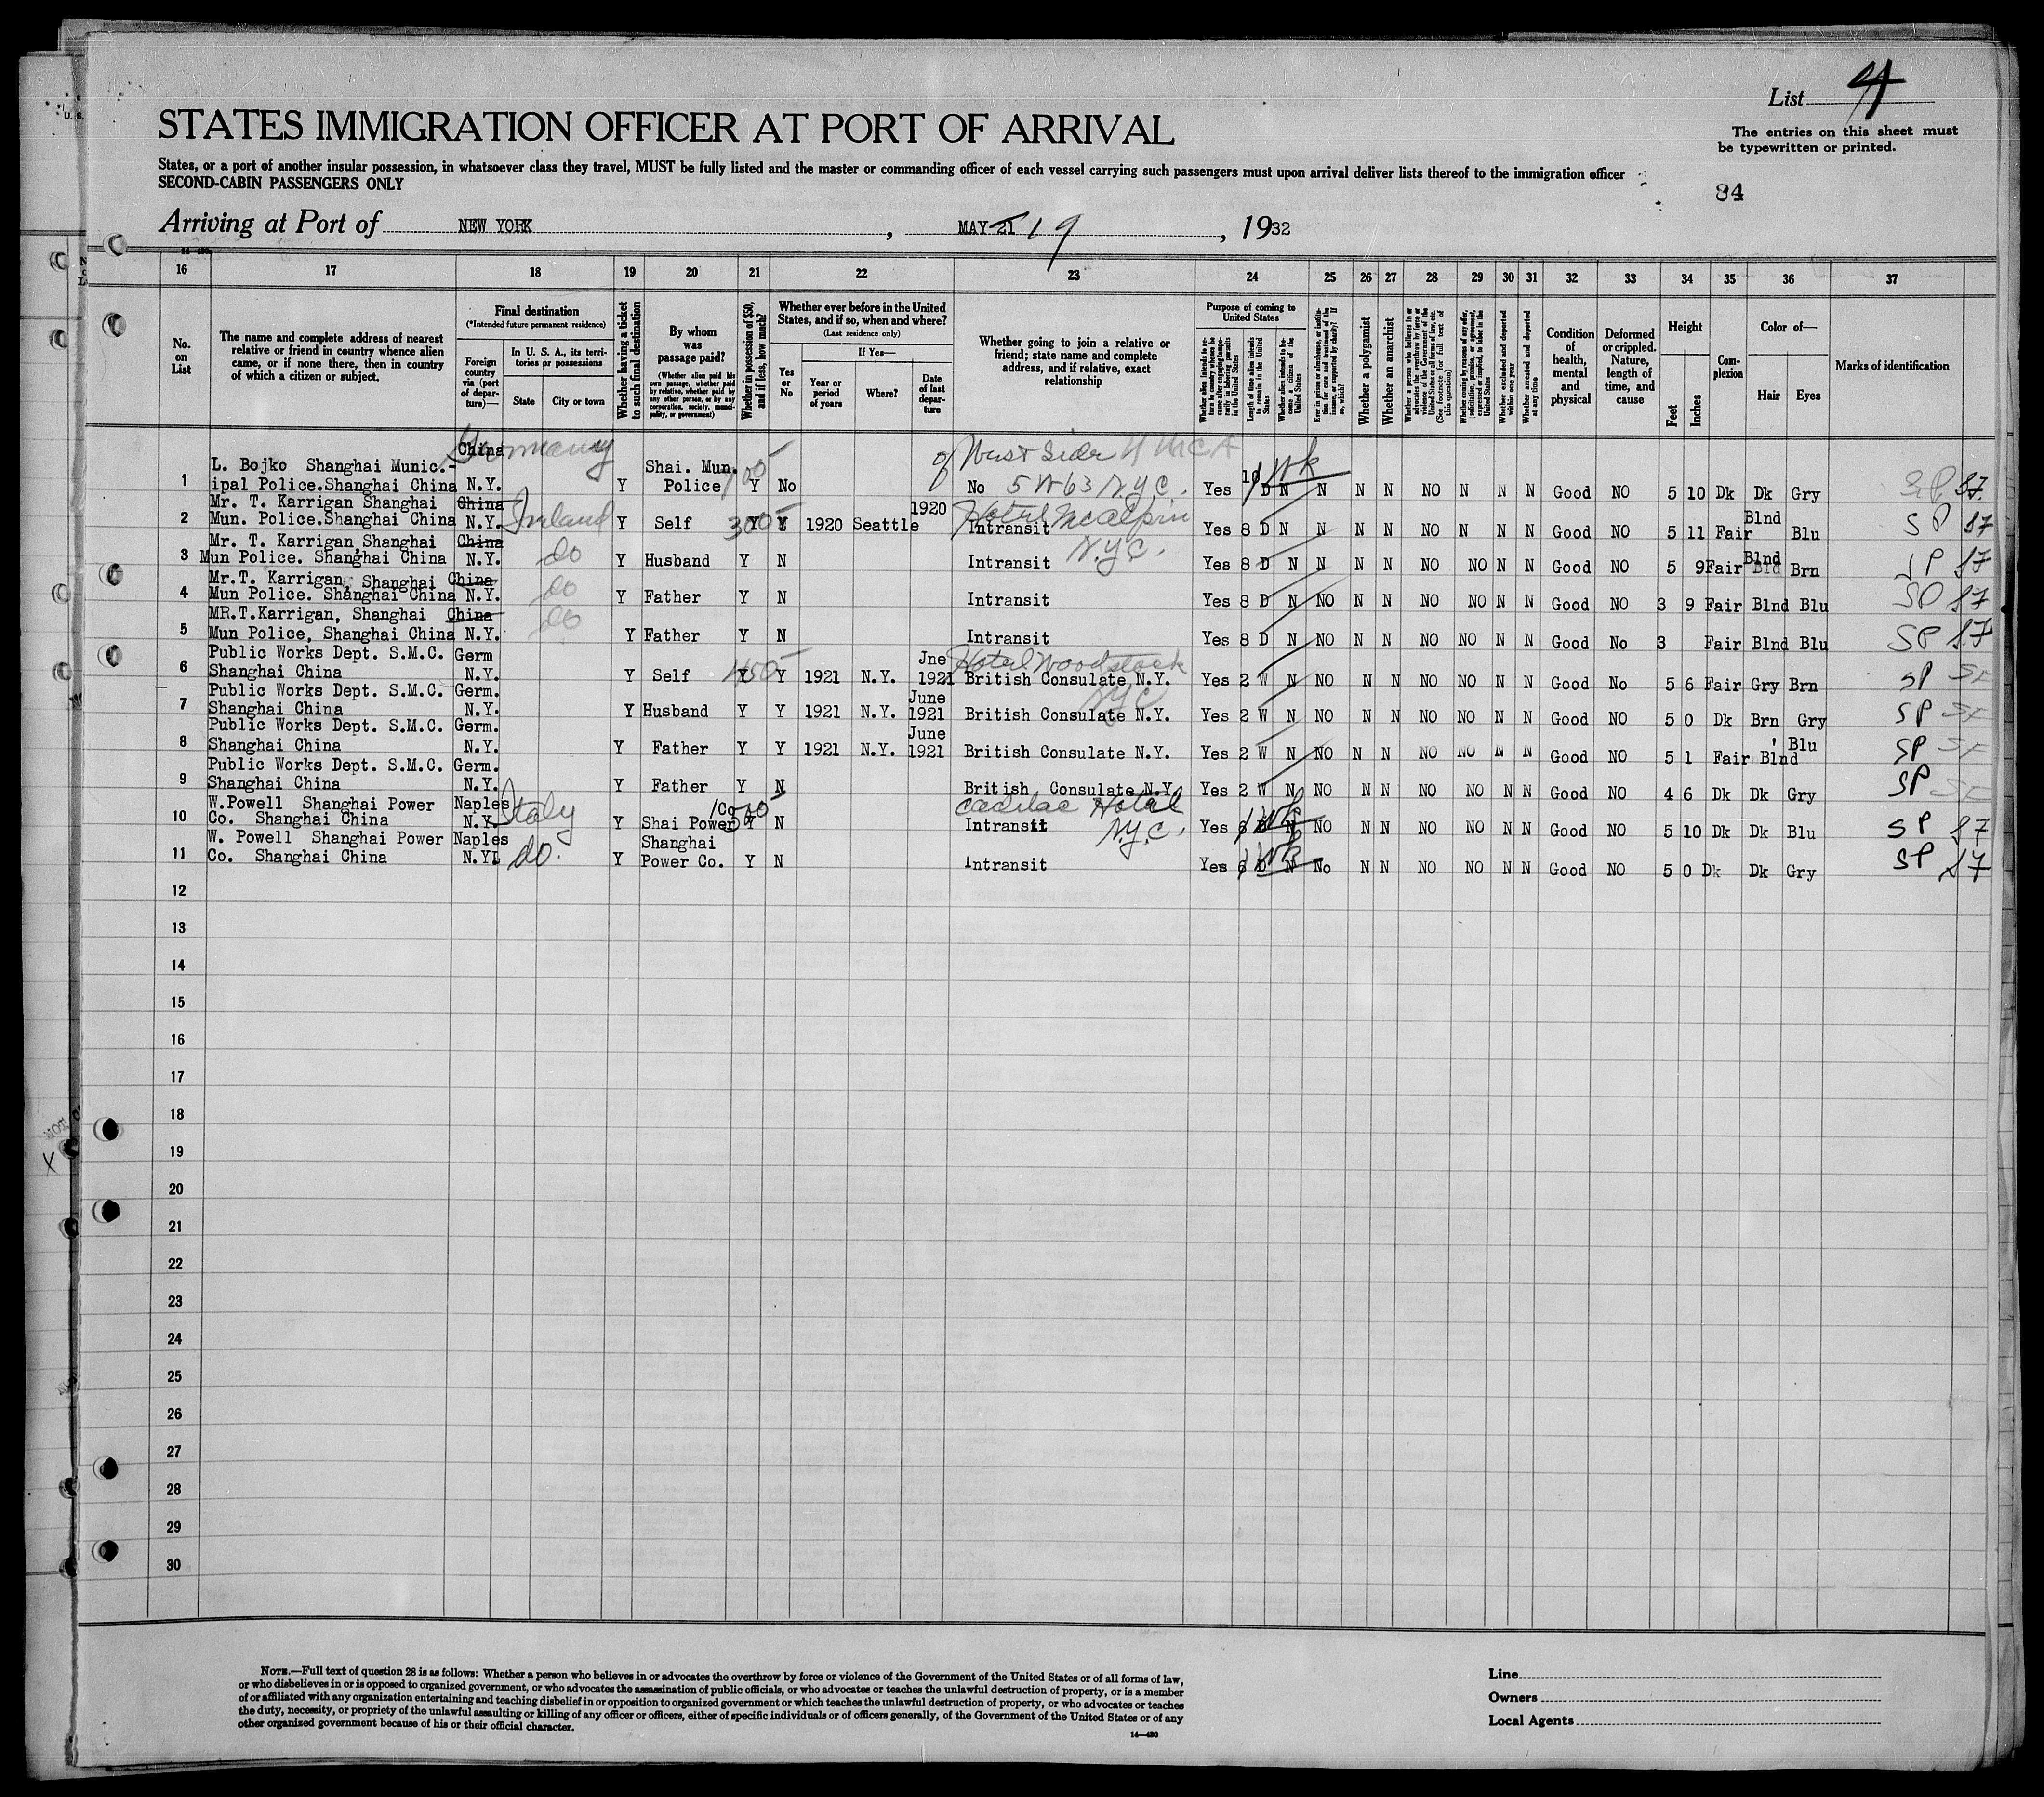 List 4
STATES IMMIGRATION OFFICER AT PORT OF ARRIVAL
The entries on this sheet must
be typewritten or printed.
States, or a port of another insular possession, in whatsoever class they travel, MUST be fully listed and the master or commanding officer of each vessel carrying such passengers must upon arrival deliver lists thereof to the immigration officer
SECOND-CABIN PASSENGERS ONLY
84
Arriving at Port of NEW YORK, MAY 21 19, 1932
16 17 18 19 20 21 22 23 24 25 26 27 28 29 30 31 32 33 34 35 36 37
No. on List
The name and complete address of nearest relative or friend in country whence alien came, or if none there, then in country of which a citizen or subject.
Final destination
(*Intended future permanent residence)
Foreign country via (port of departure)—
In U. S. A., its territories or possessions
State
City or town
Whether having a ticket to such final destination
By whom was passage paid?
(Whether alien paid his own passage, whether paid by relative, whether paid by any other person, or by any corporation, society, municipality, or government)
Whether in possession of $50, and if less, how much?
Whether ever before in the United States, and if so, when and where?
(Last residence only)
Yes or No
If Yes—
Year or period of years
Where?
Date of last departure
Whether going to join a relative or friend; state name and complete address, and if relative, exact relationship
Purpose of coming to United States
Length of time alien intends to remain in the United States
Whether alien intends to become a citizen of the United States
Whether a polygamist
Whether an anarchist
Whether excluded and deported within one year
Whether arrested and deported at any time
Condition of health, mental and physical
Deformed or crippled. Nature, length of time, and cause
Height
Feet
Inches
Complexion
Color of—
Hair
Eyes
Marks of identification
1 L. Bojko Shanghai Munic.-ipal Police.Shanghai China China N.Y. Germany Y Shai. Mun. Police 100 Y No No West Side YMCA 5 W 63 N.Y.C. Yes 10 D 1 Wk N N N N NO N N N Good NO 5 10 Dk Dk Gry SP 87
2 Mr. T. Karrigan Shanghai Mun. Police.Shanghai China China N.Y. Ireland Y Self 300 Y Y 1920 Seattle 1920 Hotel McAlpin Intransit N.Y.C. Yes 8 D N N N N NO N N N Good NO 5 11 Fair Blnd Blu SP 87
3 Mr. T. Karrigan,Shanghai Mun Police. Shanghai China China N.Y. do Y Husband Y N Intransit Yes 8 D N N N N NO NO N N Good NO 5 9 Fair Blnd Brn SP 87
4 Mr.T. Karrigan, Shanghai Mun Police. Shanghai China China N.Y. do Y Father Y N Intransit Yes 8 D N NO N N NO NO N N Good NO 3 9 Fair Blnd Blu SP 87
5 MR.T.Karrigan, Shanghai Mun Police, Shanghai China China N.Y. do Y Father Y N Intransit Yes 8 D N NO N N NO NO N N Good No 3 Fair Blnd Blu SP 87
6 Public Works Dept. S.M.C. Shanghai China Germ N.Y. Y Self 450 Y Y 1921 N.Y. Jne 1921 Hotel Woodstock NYC British Consulate N.Y. Yes 2 W N NO N N NO NO N N Good No 5 6 Fair Gry Brn SP
7 Public Works Dept. S.M.C. Shanghai China Germ. N.Y. Y Husband Y Y 1921 N.Y. June 1921 British Consulate N.Y. Yes 2 W N NO N N NO NO N N Good NO 5 0 Dk Brn Gry SP
8 Public Works Dept. S.M.C. Shanghai China Germ. N.Y. Y Father Y Y 1921 N.Y. June 1921 British Consulate N.Y. Yes 2 W N NO N N NO NO N N Good NO 5 1 Fair Blnd Blu SP
9 Public Works Dept. S.M.C. Shanghai China Germ. N.Y. Y Father Y N British Consulate N.Y. Yes 2 W N NO N N NO NO N N Good NO 4 6 Dk Dk Gry SP
10 W.Powell Shanghai Power Co. Shanghai China Naples N.Y. Italy Y Shai Power/Co 500 Y N Cadilac Hotel N.Y.C. Intransit Yes 6 D 1 Wk N NO N N NO NO N N Good NO 5 10 Dk Dk Blu SP 87
11 W. Powell Shanghai Power Co. Shanghai China Naples N.Y. do. Y Shanghai Power Co. Y N Intransit Yes 6 D 1 Wk N No N N NO NO N N Good NO 5 0 Dk Dk Gry SP 87
12
13
14
15
16
17
18
19
20
21
22
23
24
25
26
27
28
29
30
NOTE.—Full text of question 28 is as follows: Whether a person who believes in or advocates the overthrow by force or violence of the Government of the United States or of all forms of law,
or who disbelieves in or is opposed to organized government, or who advocates the assassination of public officials, or who advocates or teaches the unlawful destruction of property, or is a member
of or affiliated with any organization entertaining and teaching disbelief in or opposition to organized government or which teaches the unlawful destruction of property, or who advocates or teaches
the duty, necessity, or propriety of the unlawful assaulting or killing of any officer or officers, either of specific individuals or of officers generally, of the Government of the United States or of any
other organized government because of his or their official character.
14—430
Line
Owners
Local Agents